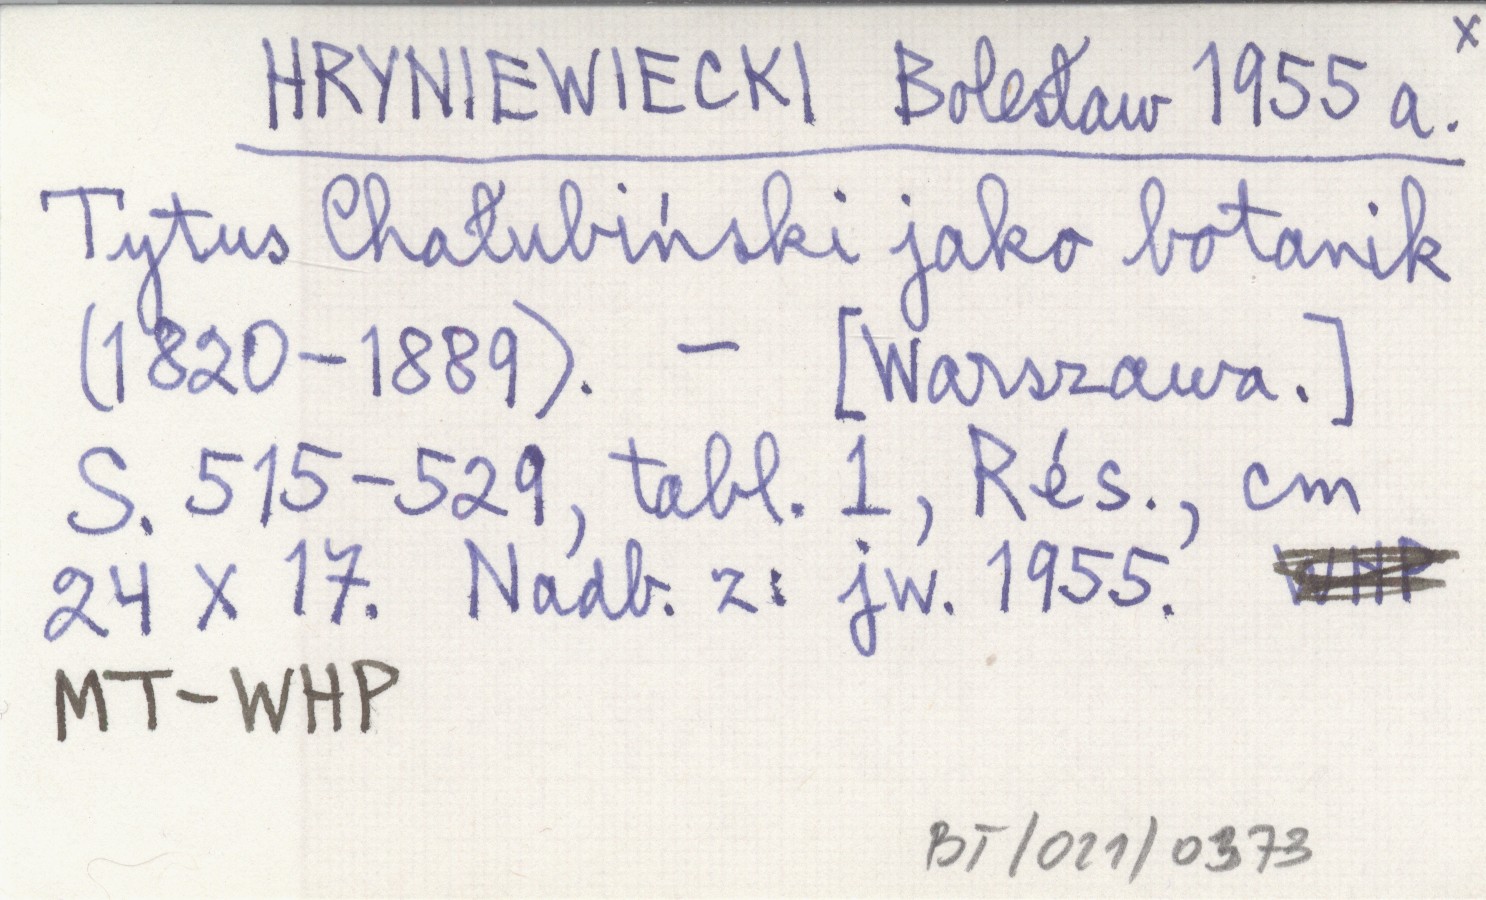 x
HRYNIEWIECKI Bolesław 1955 a.
Tytus Chałubiński jako botanik
(1820-1889). - [Warszawa.]
S. 515-529, tabl. 1, Rés., cm
24 x 17. Nadb. z: jw. 1955. WHP
MT-WHP
BT/021/0373